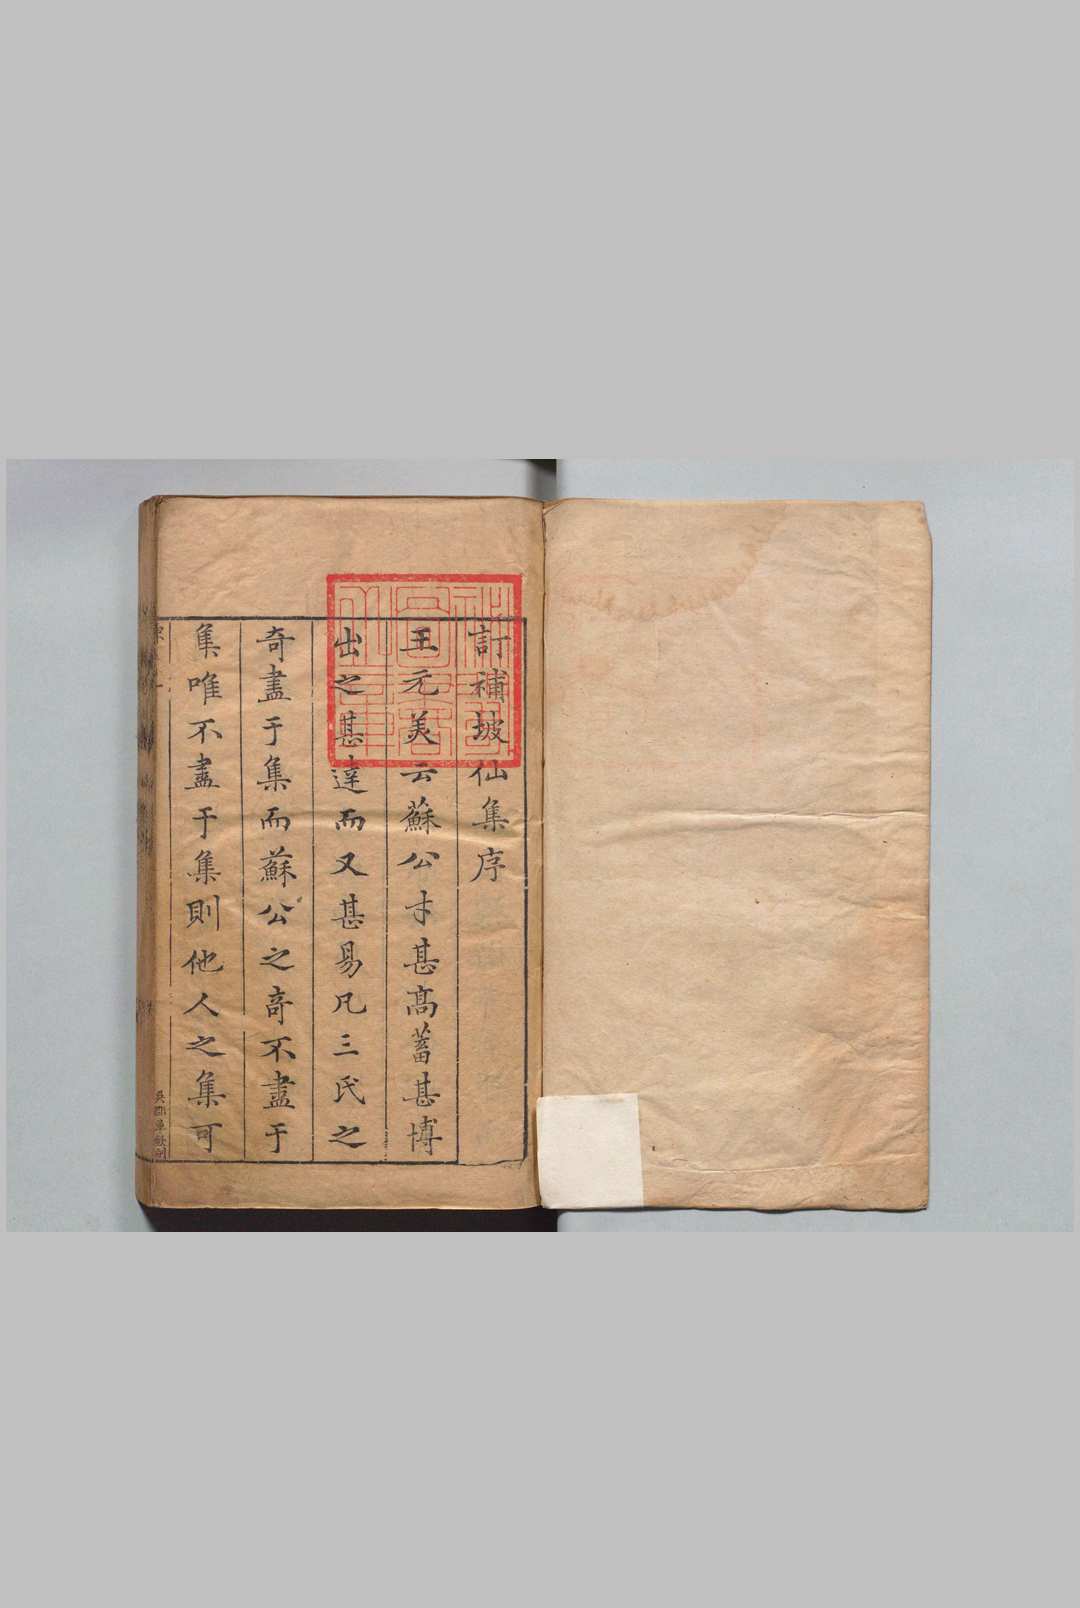 訂補坡仙集序
王元美云蘇公才甚高蓄甚博
出之甚達而又甚易凡三氏之
奇盡于集而蘇公之奇不盡于
集唯不盡于集則他人之集可